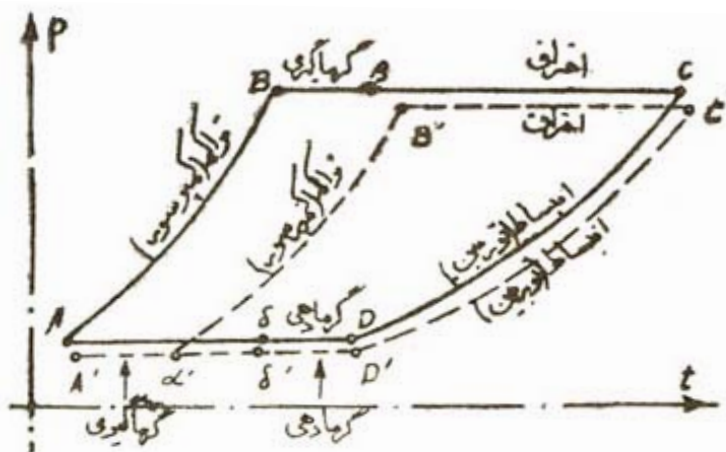 P
B
گرماگیری
β
احتراق
C
B'
احتراق
C'
تراکم (کمپرسور)
تراکم (کمپرسور)
انبساط (توربین)
انبساط (توربین)
A
δ
گرمادهی
D
A'
α'
δ'
D'
t
گرمادهی